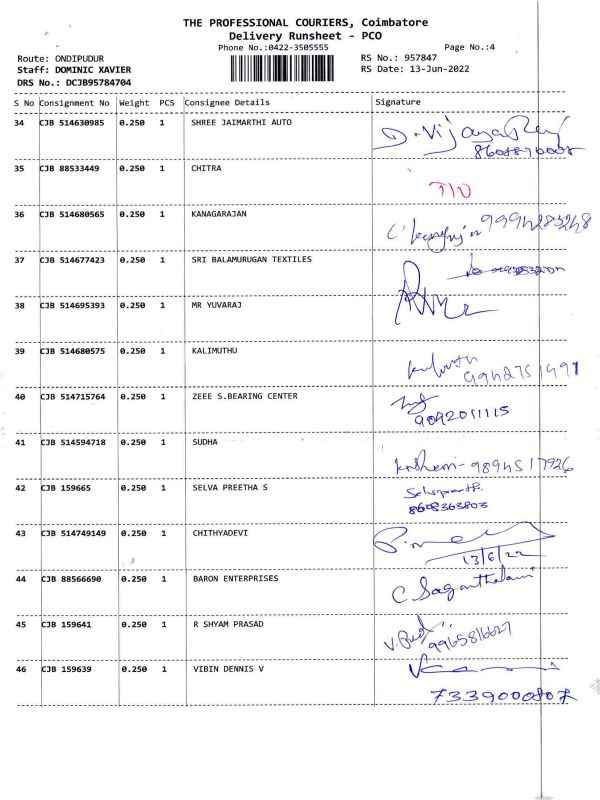 THE PROFESSIONAL COURIERS, Coimbatore
Delivery Runsheet - PCO
Phone No.:0422-3505555
Page No.:4
Route: ONDIPUDUR
RS No.: 957847
Staff: DOMINIC XAVIER
RS Date: 13-Jun-2022
DRS No.: DCJB95784704
S No Consignment No Weight PCS Consignee Details Signature
34 CJB 514630985 0.250 1 SHREE JAIMARTHI AUTO
35 CJB 88533449 0.250 1 CHITRA
36 CJB 514680565 0.250 1 KANAGARAJAN
37 CJB 514677423 0.250 1 SRI BALAMURUGAN TEXTILES
38 CJB 514695393 0.250 1 MR YUVARAJ
39 CJB 514680575 0.250 1 KALIMUTHU
40 CJB 514715764 0.250 1 ZEEE S.BEARING CENTER
9092011115
41 CJB 514594718 0.250 1 SUDHA
42 CJB 159665 0.250 1 SELVA PREETHA S
8608363803
43 CJB 514749149 0.250 1 CHITHYADEVI
13/6/22
44 CJB 88566690 0.250 1 BARON ENTERPRISES
45 CJB 159641 0.250 1 R SHYAM PRASAD
9965816627
46 CJB 159639 0.250 1 VIBIN DENNIS V
7339000807